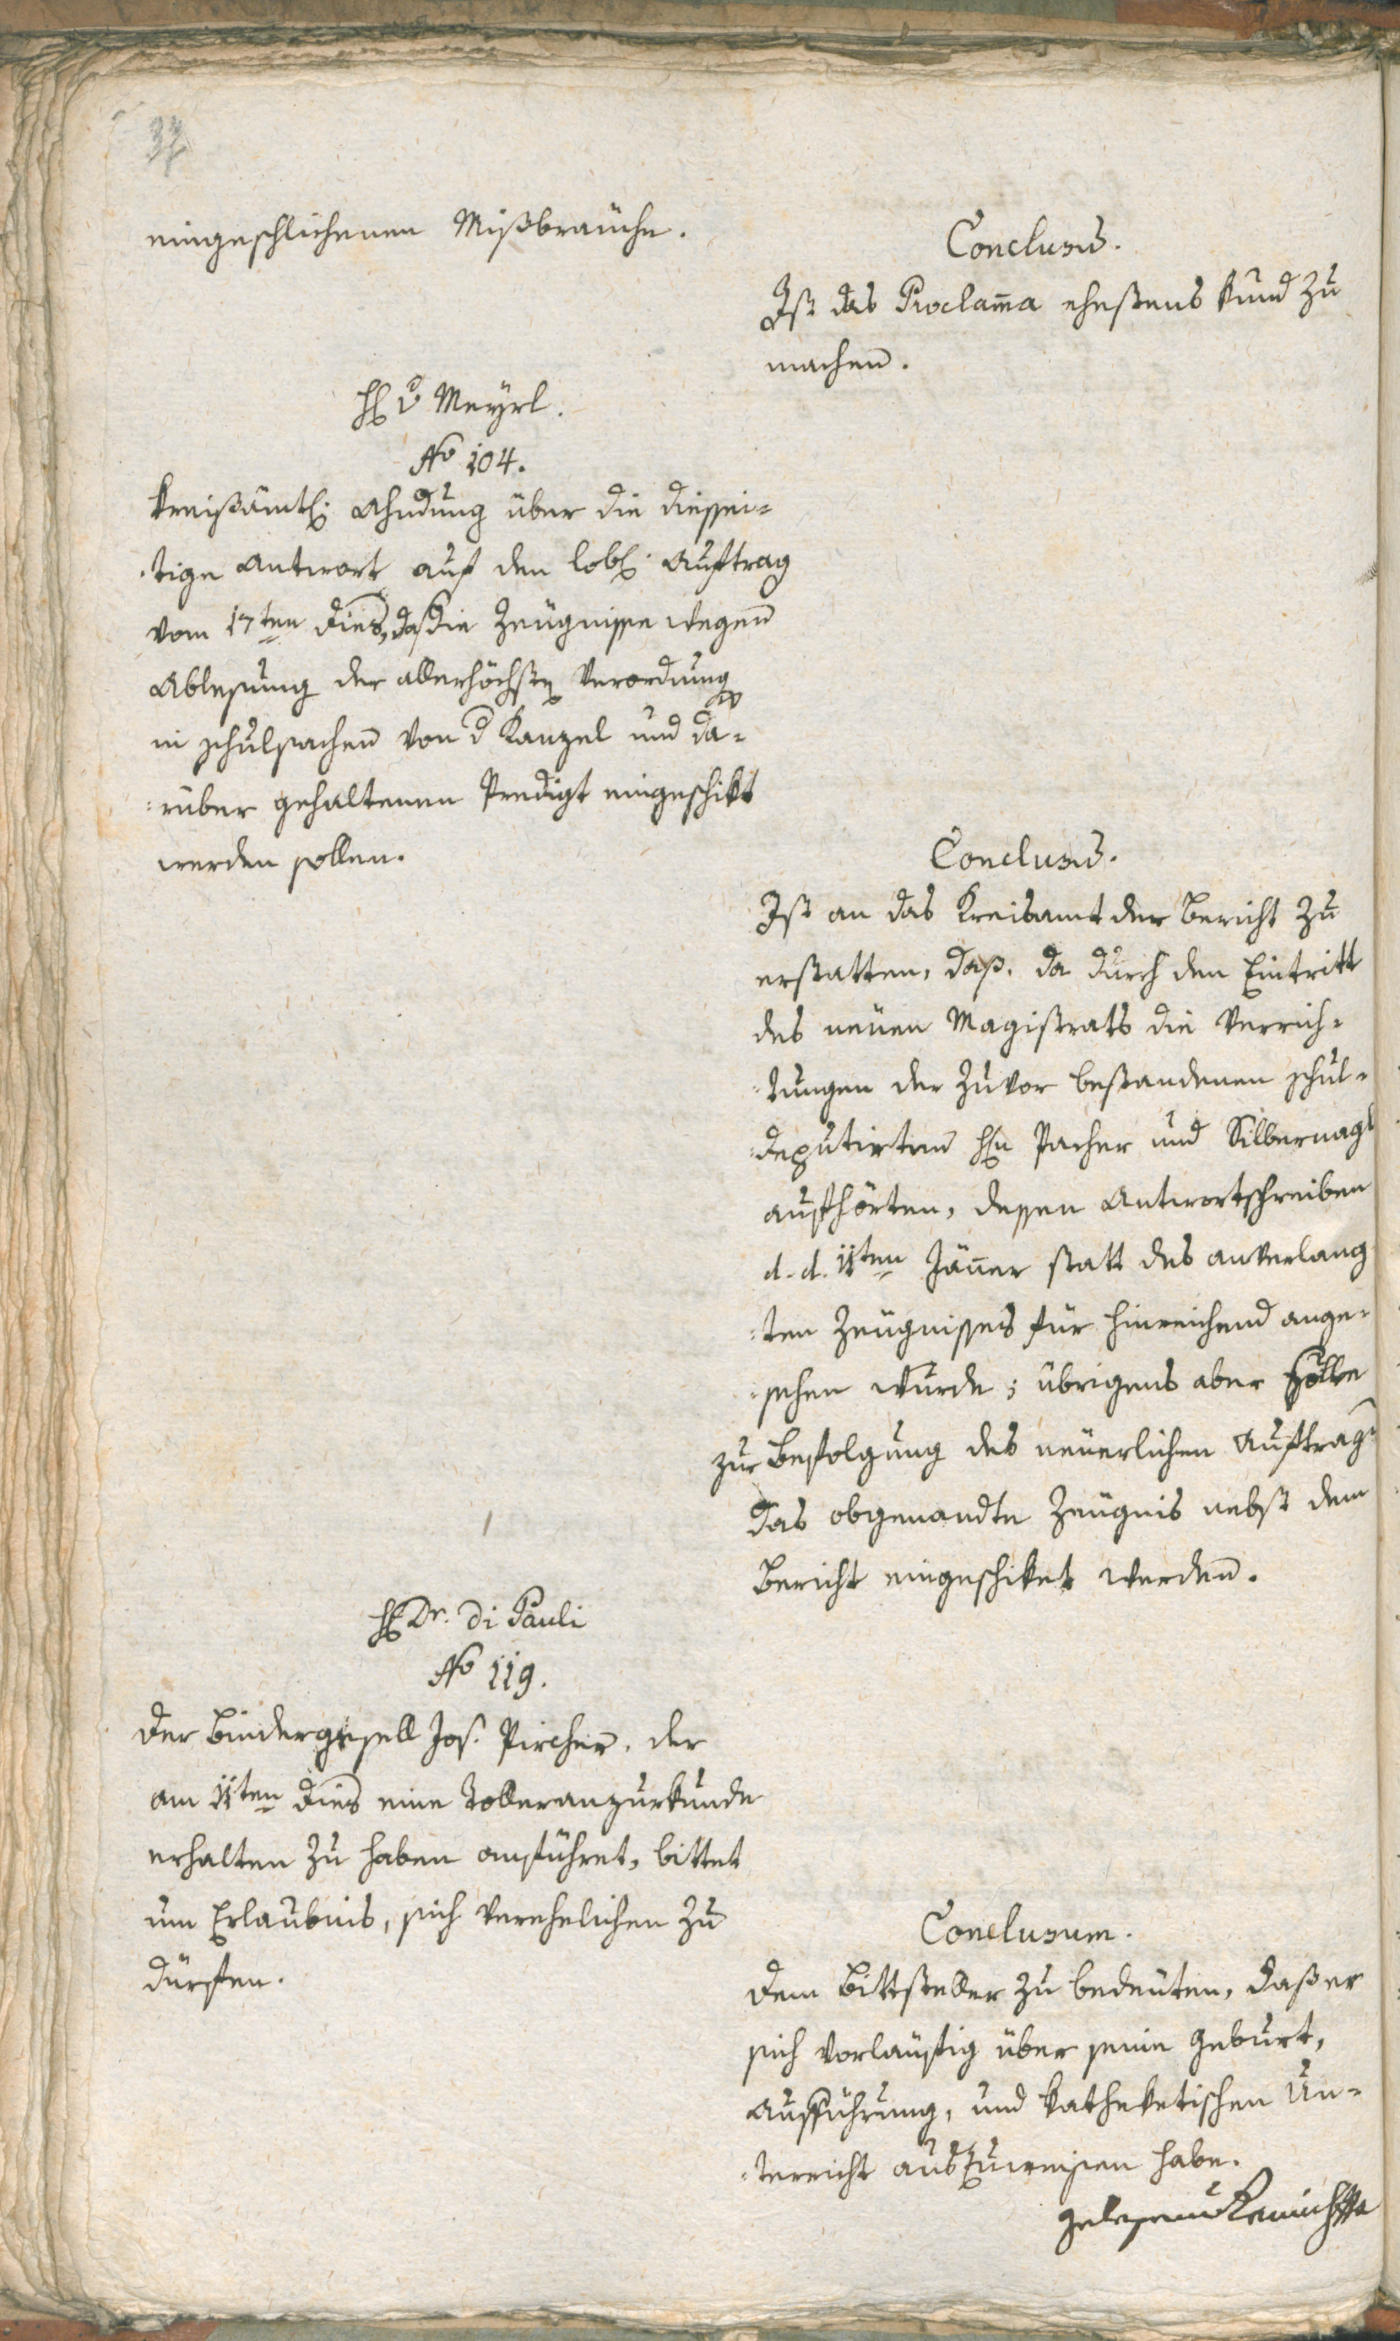 37
eingeschlichenen Mißbräuche.
Conclusũ.
Ist das Proclam̃a ehestens kund zu
machen.
H v Meyrl.
No 104.
Kreißämtl: Ahndung über die diessei=
tige Antwort auf den löbl: Auftrag
vom 17ten dies, daß die Zeugnisse wegen
Ablesung der allerhöchsten Verordnung
in schulsachen von d Kanzel und da=
rüber gehaltenen Predigt eingeschikt
werden sollen.
Conclusũ.
Ist an das Kreisamt der Bericht zu
erstatten, daß, da durch den Eintritt
des neuen Magistrats die Verrich=
tungen der zuvor bestandenen schul=
deputirten Hn Pacher und Silbernagl
aufhörten, dessen Antwortschreiben
d. d. 11ten Jäñer statt des anverlang
ten Zeugnisses für hinreichend ange=
sehen wurde; übrigens aber solle
zur Befolgung des neuerlichen Auftrags
das obgenandte Zeugnis nebst dem
Bericht eingeschiket werden.
H Dr. di Pauli
No 119.
Der Bindergesell Jos. Pircher, der
am 11ten dies eine Tolleranzurkunde
erhalten zu haben anführet, bittet
um Erlaubnis, sich verehelichen zu
dürfen.
Conclusum.
Dem Bittsteller zu bedeuten, daß er
sich vorläufig über seine Geburt,
Aufführung, und katheketischen Un=
terricht auszuweisen habe.
gelesen